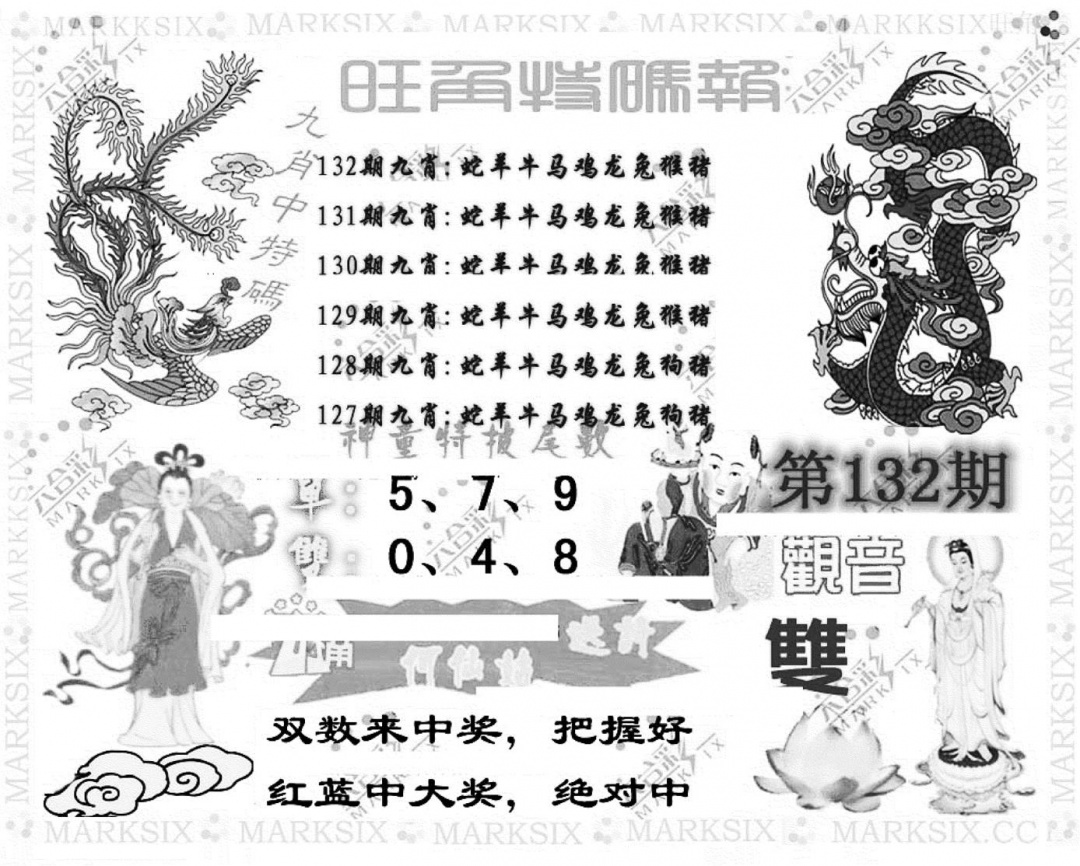 MARKKSIX MARKSIX MARKSIX MARKSIX MARKKSIX
旺角特碼報
九肖中特碼
132期九肖:蛇羊牛马鸡龙兔猴猪
131期九肖:蛇羊牛马鸡龙兔猴猪
130期九肖:蛇羊牛马鸡龙兔猴猪
129期九肖:蛇羊牛马鸡龙兔猴猪
128期九肖:蛇羊牛马鸡龙兔狗猪
127期九肖:蛇羊牛马鸡龙兔狗猪
神童特披尾数
第132期
單: 5、7、9
雙: 0、4、8
觀音
雙
何仙姑
双数来中奖，把握好
红蓝中大奖，绝对中
MARKSIX MARKSIX MARKSIX MARKSIX MARKSIX.CC